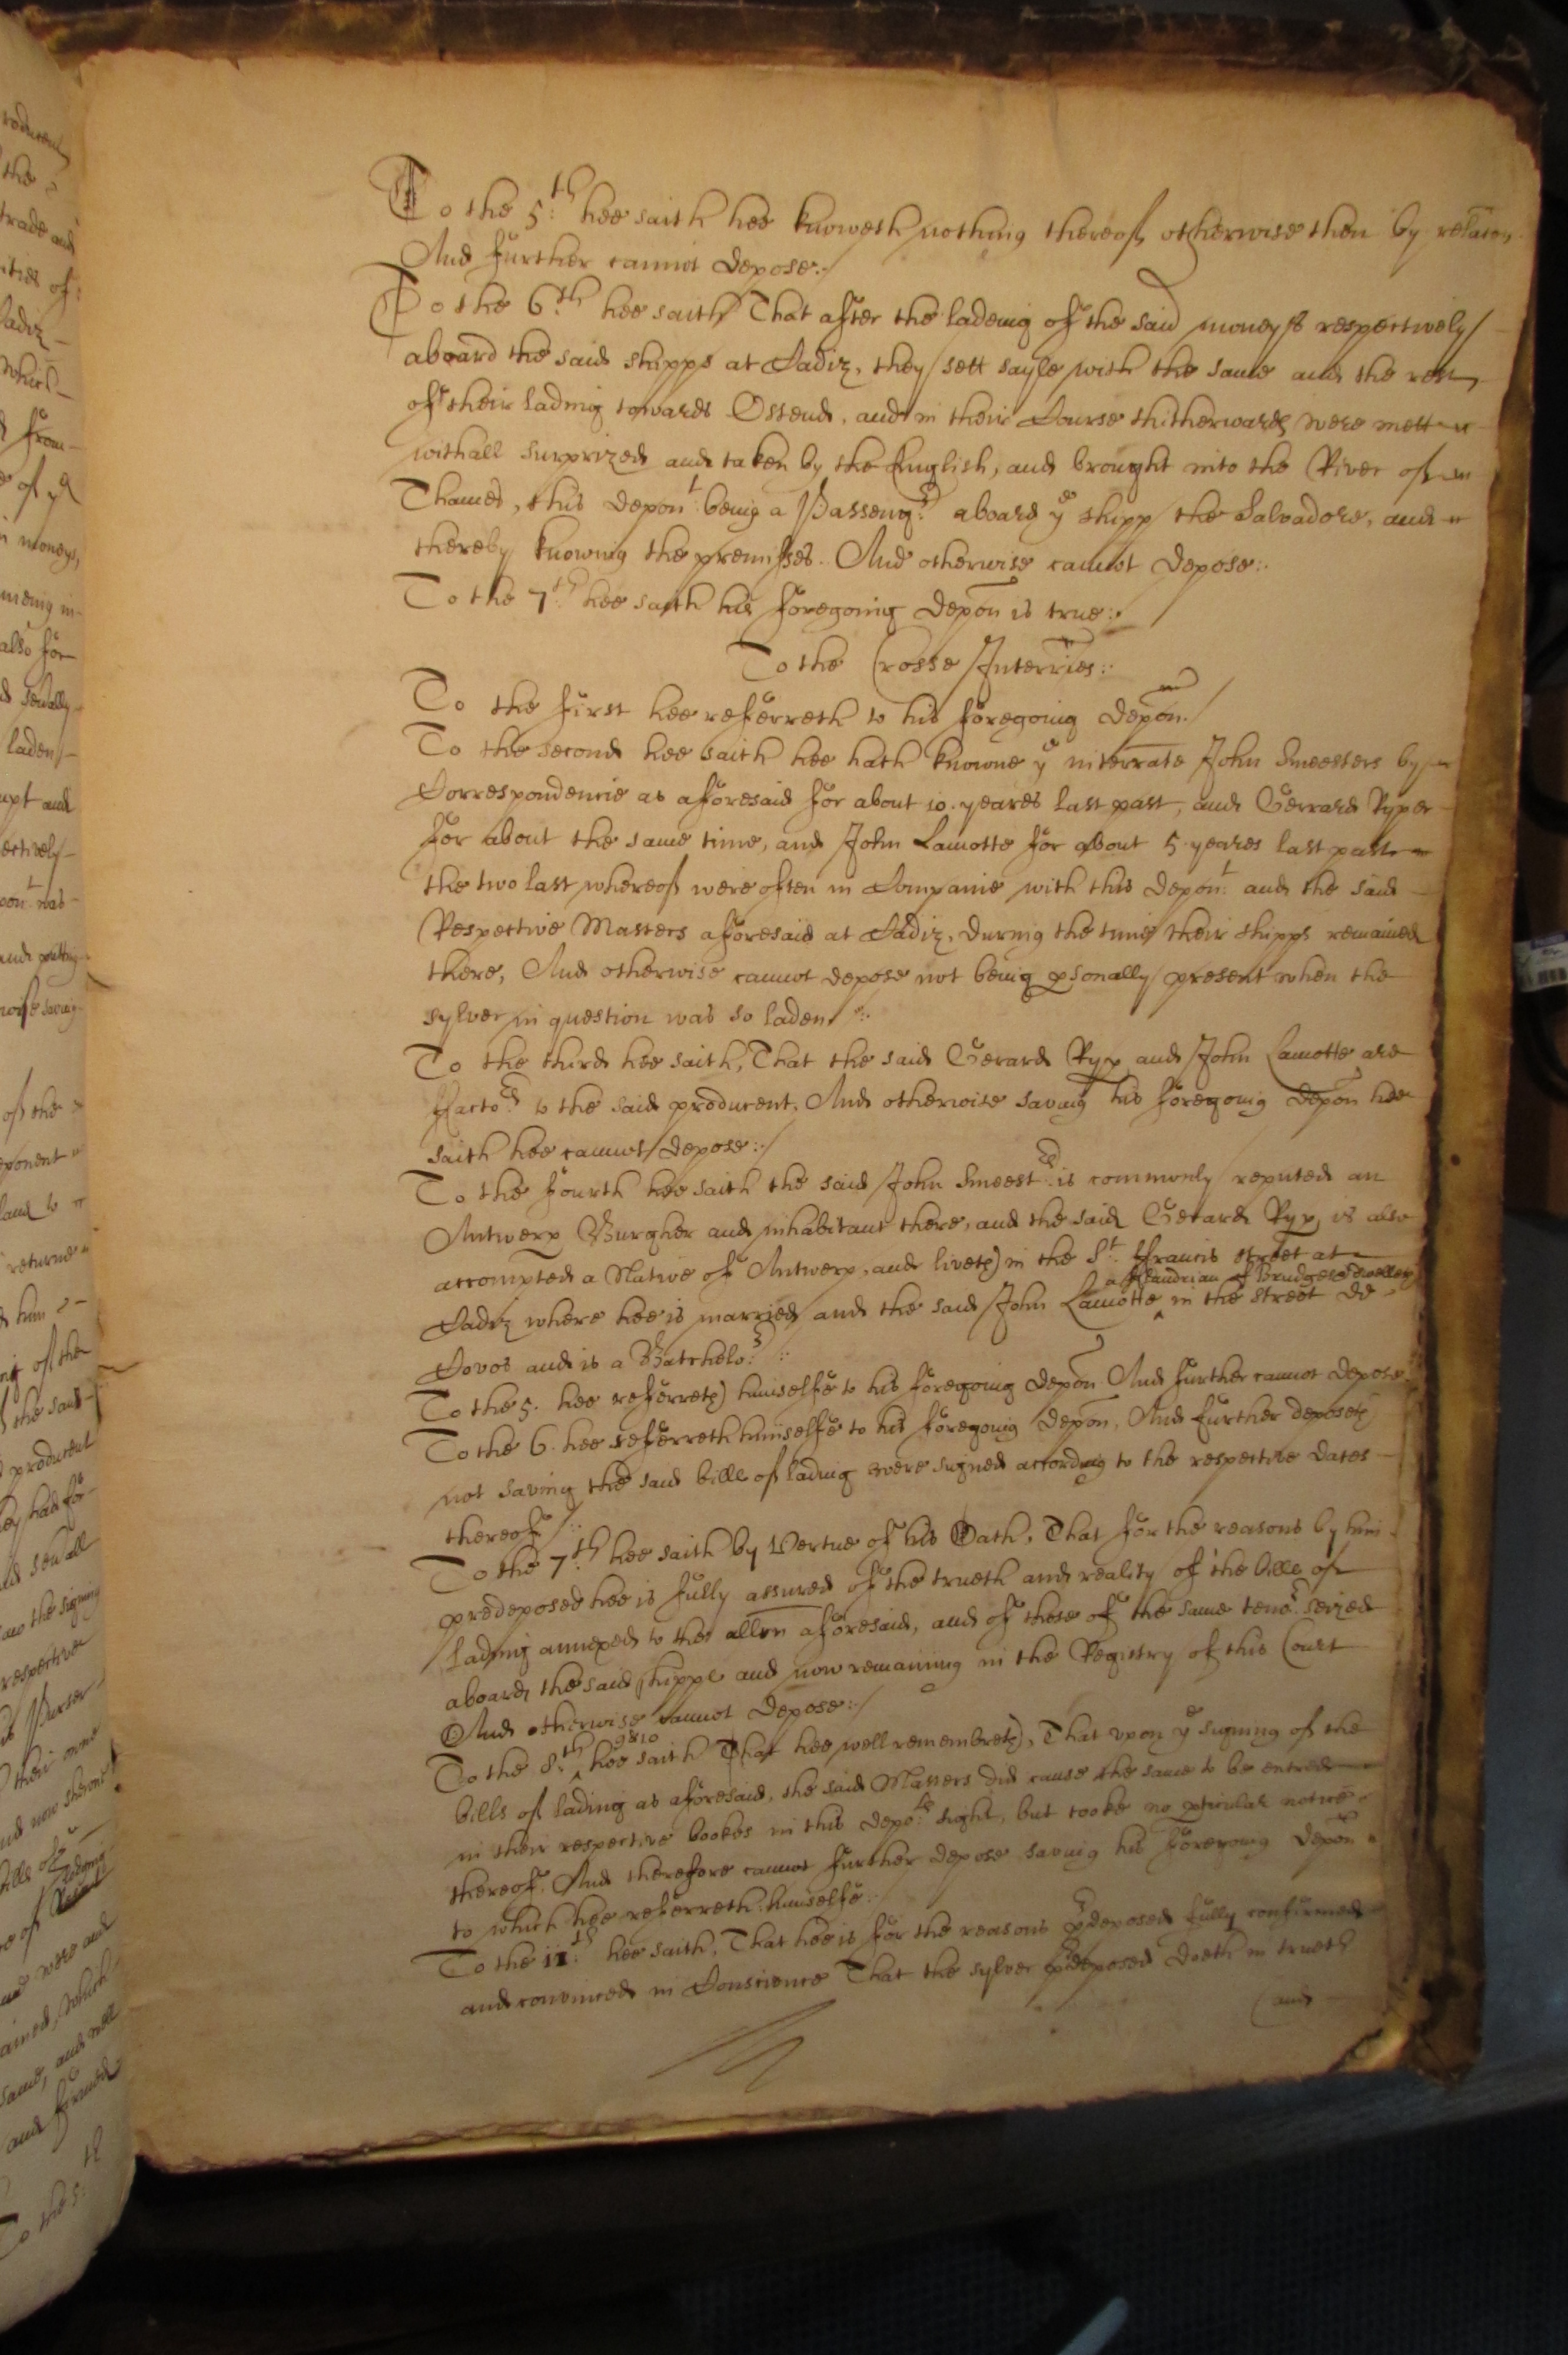 To the 5:th hee saith hee knoweth nothing thereof otherwise then by relation
And further cannot depose:/
To the 6:th hee saith That after the ladeing of the said moneys respectively
aboard the said shipps at Cadiz, they sett sayle with the same and the rest
of their lading towards Ostend, and in their Course thitherwards were mett
withall surprized and taken by the English, and brought into the River of
Thames, this depon:t being a Passeng:r aboard ye shipp the Salvadore, and
thereby knowing the premisses. And otherwise cannot depose:
To the 7:th hee saith his foregoing depon is true:
To the Crosse Interries:
To the first hee referreth to his foregoing depon./
To the second hee saith hee hath knowne ye interrate John Smeesters by
Correspondencie as aforesaid for about 10. yeares last past, and Gerrard Ryper
for about the same time, and John Lamotte for about 5 yeares last past
the two last whereof were often in Companie with this depon:t and the said
Respective Masters aforesaid at Cadiz, during the time their shipps remained
there, And otherwise cannot depose not being psonally present when the
sylver in question was so laden.
To the third hee saith, That the said Gerard Ryp and John Lamotte are
ffacto:rs to the said producent. And otherwise saving his foregoing depon hee
saith hee cannot depose:/
To the fourth hee saith the said John Smeest:rs is commonly reputed an
Antwerp Burgher and inhabitant there, and the said Gerard Ryp, is also
accompted a Native of Antwerp, and liveth in the S:t ffrancis street at
Cadiz where hee is married and the said John Lamotte a fflandrian of Brudges dwelleth in the street de
Covos and is a Batchelo:r:
To the 5. hee referreth himselfe to his foregoing depon And further cannot depose.
To the 6. hee referreth himselfe to his foregoing depon, And further deposeth
not saving the said bills of lading were signed according to the respective dates
thereof/:
To the 7:th hee saith by Vertue of his Oath, That for the reasons by him
predeposed hee is fully assured of the trueth and reality of the bills of
lading annexed to the allon aforesaid, and of these of the same teno:r seized
aboard the said shipps and now remaining in the Registry of this Court
And otherwise cannot depose:/
To the 8:th 9 & 10 hee saith That hee well remembreth, That upon ye signing of the
bills of lading as aforesaid, the said Masters did cause the same to be entred
in their respective bookes in this depo:ts sight, but tooke no pticular notice
thereof. And therefore cannot further depose saving his foregoing depon
to which hee referreth himselfe:
To the 11:th hee saith, That hee is for the reasons pdeposed fully confirmed
and convinced in Conscience That the sylver pdeposed doeth in trueth
and